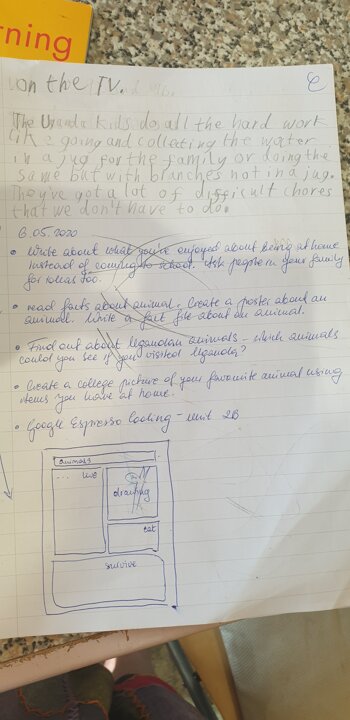 rning
on the TV.
The Uganda kids do all the hard work
like going and collecting the water
in a jug for the family or doing the
same but with branches not in a jug.
They've got a lot of difficult chores
that we don't have to do.
6.05.2020
• Write about what you've enjoyed about being at home
instead of coming to school. Ask people in your family
for ideas too.
• read facts about animals. Create a poster about an
animal. Write a fact file about an animal.
• Find out about Ugandan animals - which animals
could you see if you visited Uganda?
• Create a college picture of your favourite animal using
items you have at home.
• Google Espresso Coding - unit 2B
animals
... live
drawing
eat
survive